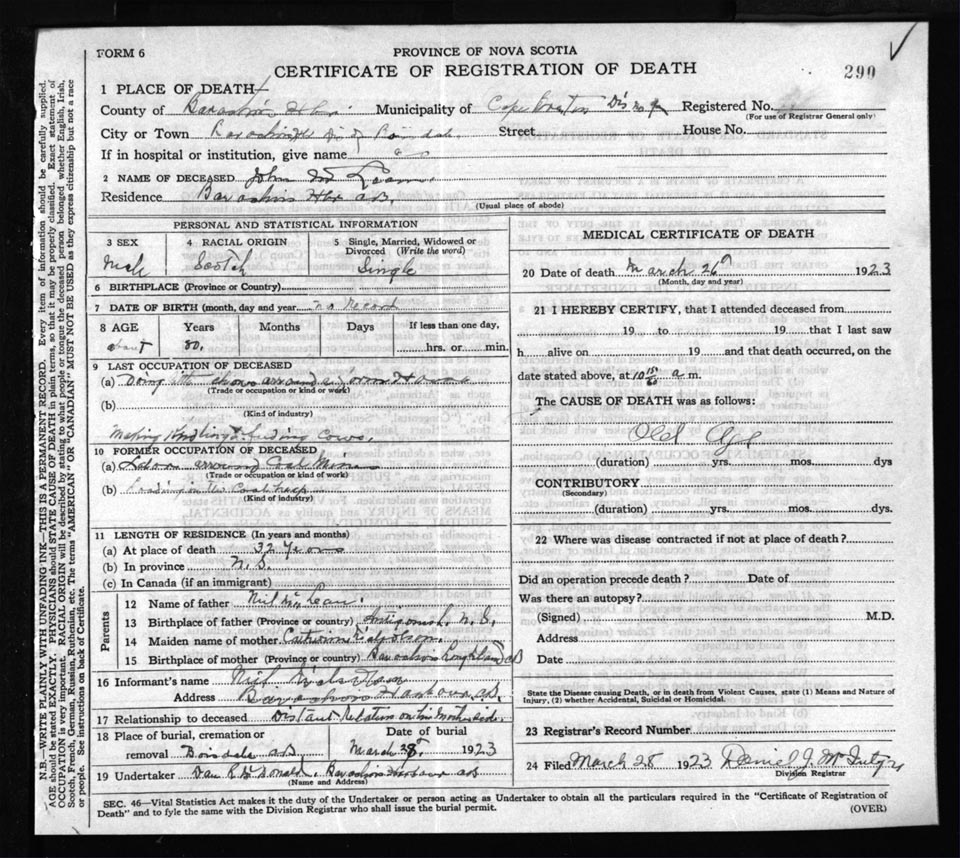 FORM 6
PROVINCE OF NOVA SCOTIA
290
CERTIFICATE OF REGISTRATION OF DEATH
1 PLACE OF DEATH—
County of Municipality of Cape Breton Registered No.
(For use of Registrar General only)
City or Town Street House No.
If in hospital or institution, give name
2 NAME OF DECEASED John
Residence Barachois Hbr C.B.
(Usual place of abode)
PERSONAL AND STATISTICAL INFORMATION
3 SEX 4 RACIAL ORIGIN 5 Single, Married, Widowed or Divorced (Write the word)
Male Scotch Single
6 BIRTHPLACE (Province or Country)
7 DATE OF BIRTH (month, day and year) no Record
8 AGE Years Months Days If less than one day,
about 80. hrs. or min.
9 LAST OCCUPATION OF DECEASED
(a) Doing chores around
(Trade or occupation or kind of work)
(b)
(Kind of industry)
Making Kindling & feeding Cows.
10 FORMER OCCUPATION OF DECEASED
(a) Labor Coal Mines
(Trade or occupation or kind of work)
(b)
(Kind of industry)
11 LENGTH OF RESIDENCE (In years and months)
(a) At place of death 32 Years
(b) In province N.S.
(c) In Canada (if an immigrant)
Parents
12 Name of father
13 Birthplace of father (Province or country) Antigonish N.S.
14 Maiden name of mother Catherine
15 Birthplace of mother (Province or country) Barachois
16 Informant's name Neil
Address Barachois Harbour C.B.
17 Relationship to deceased Distant Relation on his mother side.
18 Place of burial, cremation or Date of burial
removal Boisdale C.B. March 28, 1923
19 Undertaker Dan R. McDonald. Barachois Harbour C.B.
(Name and Address)
MEDICAL CERTIFICATE OF DEATH
20 Date of death March 26th 1923
(Month, day and year)
21 I HEREBY CERTIFY, that I attended deceased from
19 to 19 that I last saw
h alive on 19 and that death occurred, on the
date stated above, at 10 a m.
The CAUSE OF DEATH was as follows:
Old Age
(duration) yrs. mos. dys
CONTRIBUTORY
(Secondary)
(duration) yrs. mos. dys.
22 Where was disease contracted if not at place of death?
Did an operation precede death? Date of
Was there an autopsy?
(Signed) M.D.
Address
Date
State the Disease causing Death, or in death from Violent Causes, state (1) Means and Nature of
Injury, (2) whether Accidental, Suicidal or Homicidal.
23 Registrar's Record Number
24 Filed March 28 1923 Daniel J. McIntyre
Division Registrar
SEC. 46—Vital Statistics Act makes it the duty of the Undertaker or person acting as Undertaker to obtain all the particulars required in the "Certificate of Registration of
Death" and to fyle the same with the Division Registrar who shall issue the burial permit. (OVER)
N.B.—WRITE PLAINLY WITH UNFADING INK—THIS IS A PERMANENT RECORD. Every item of information should be carefully supplied.
AGE should be stated EXACTLY. PHYSICIANS should STATE CAUSE OF DEATH in plain terms, so that it may be properly classified. Exact statement of
OCCUPATION is very important. RACIAL ORIGIN will be described by stating to what people or tongue the deceased person belonged whether English, Irish,
Scotch, French, German, Russian, Ruthenian, etc. The terms "AMERICAN" OR "CANADIAN" MUST NOT BE USED as they express citizenship but not a race
or people. See instructions on back of Certificate.